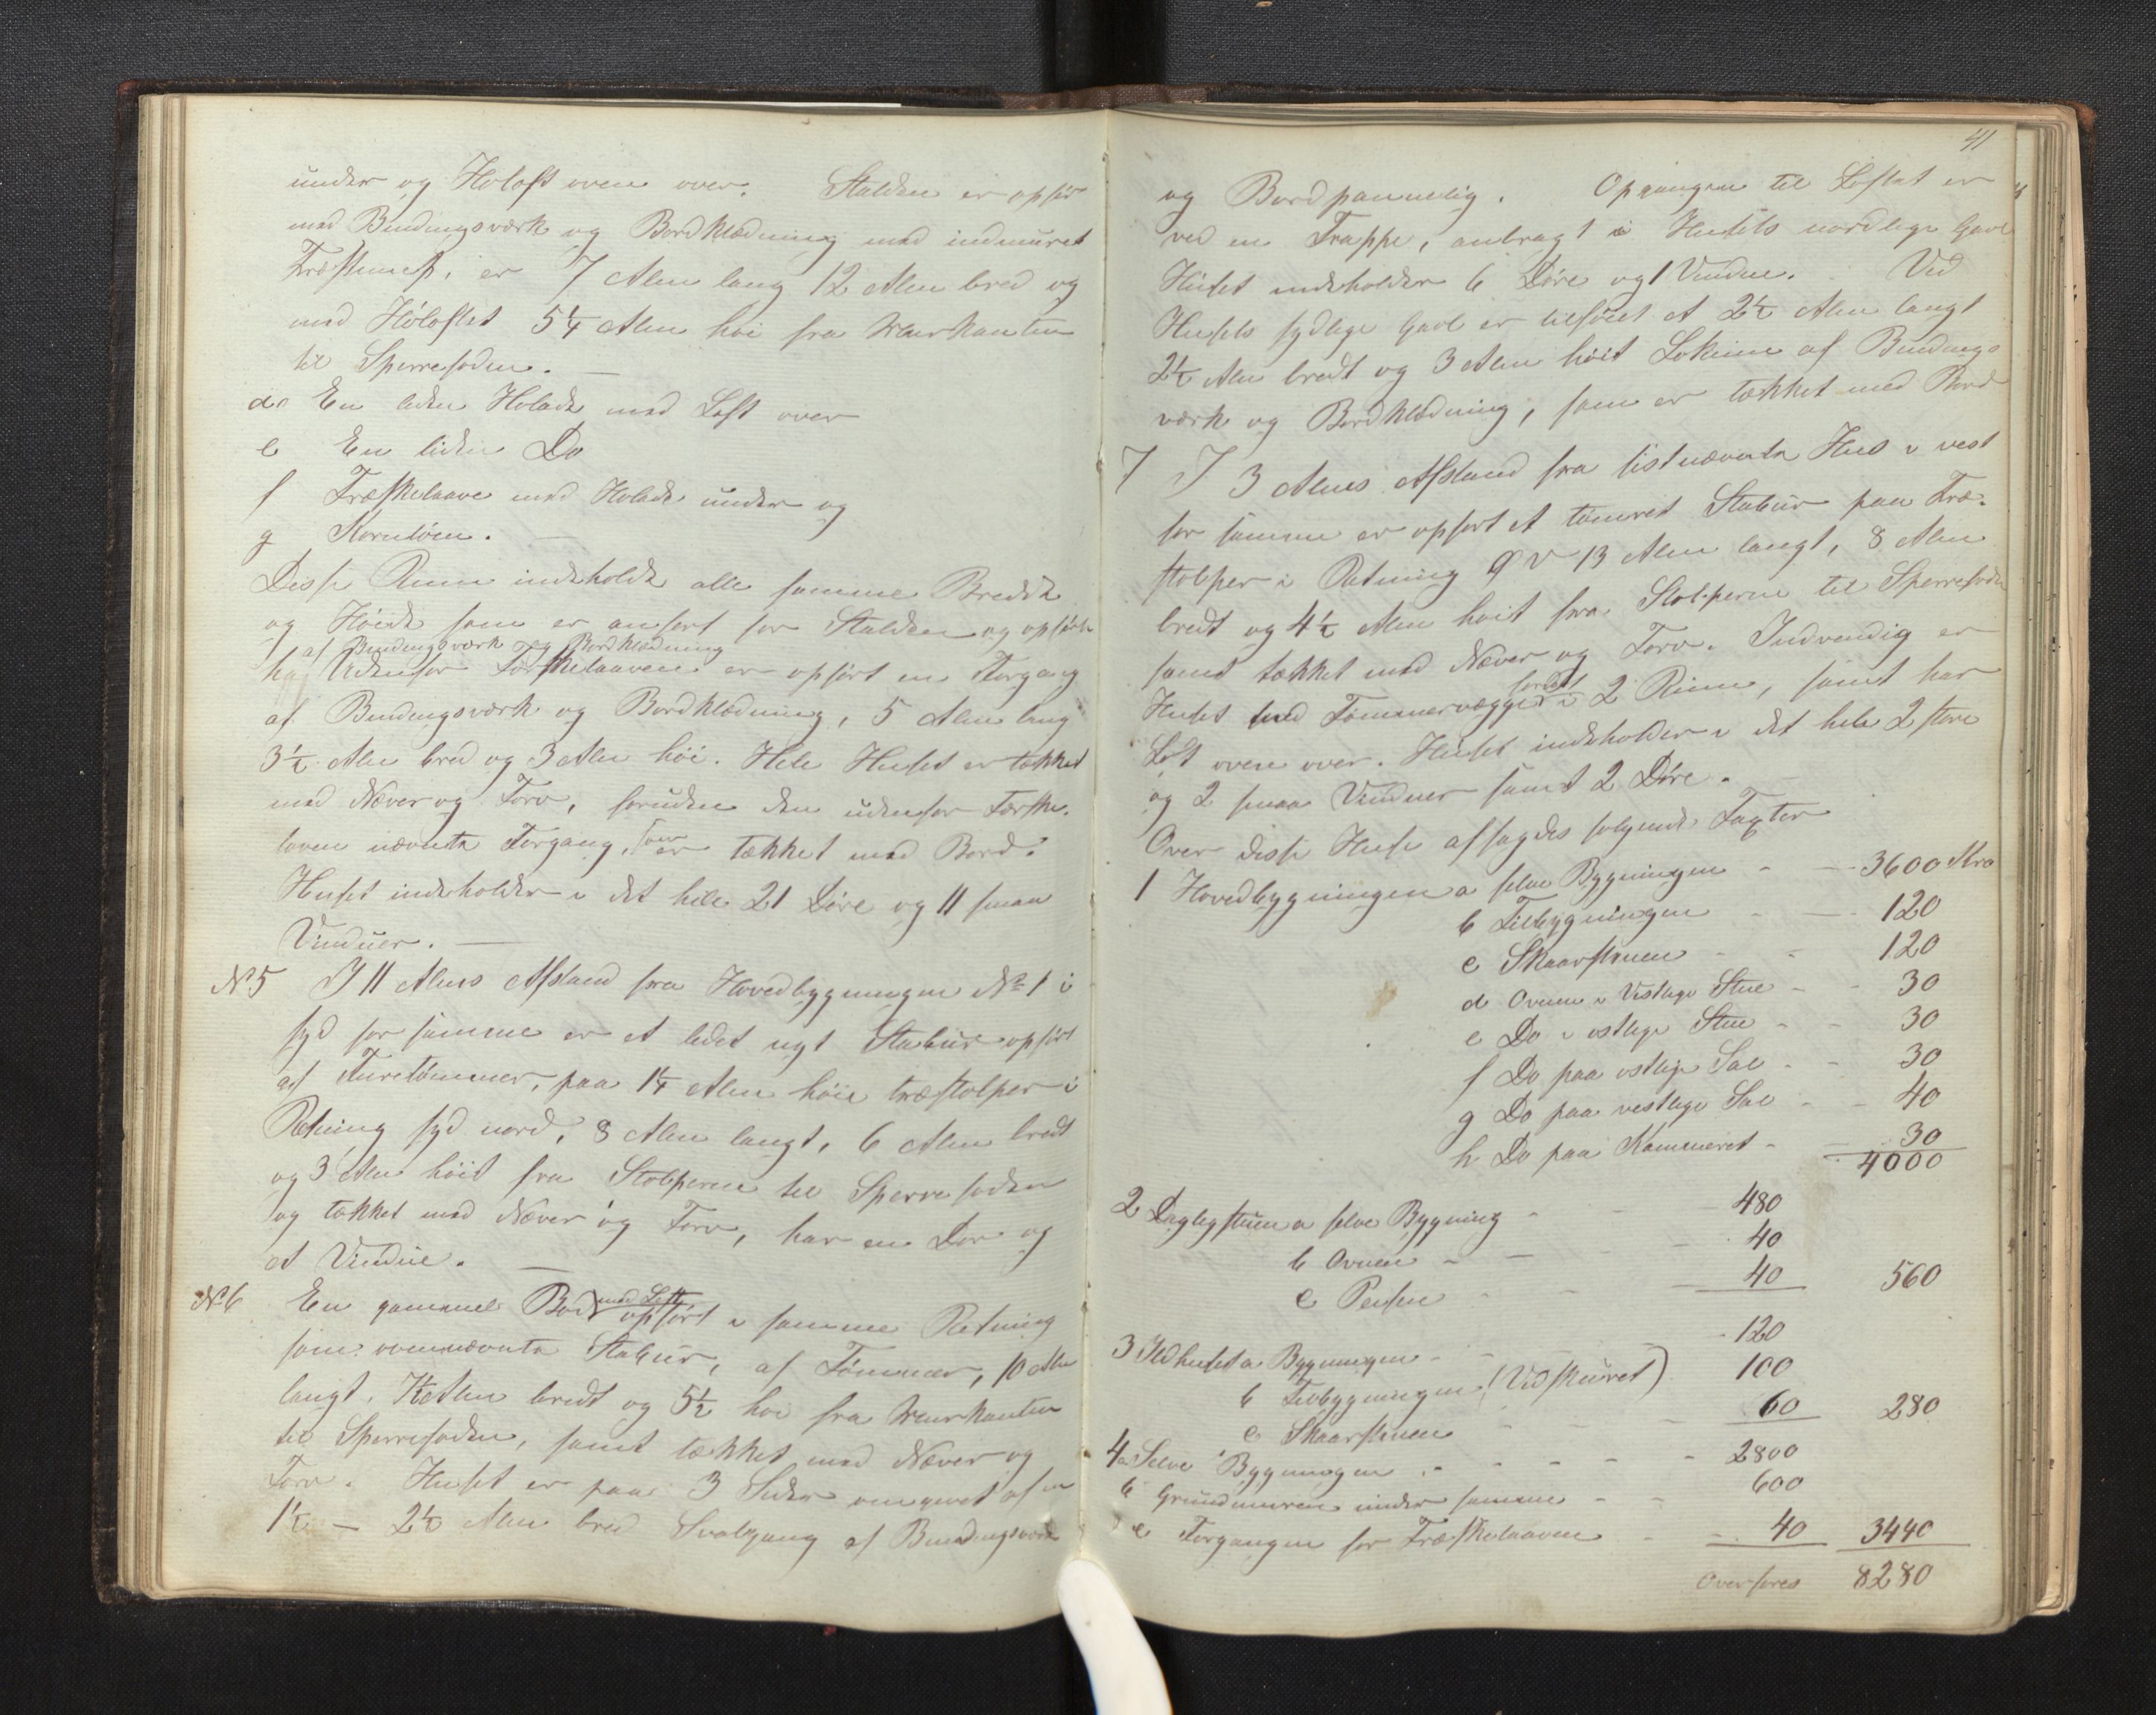 under og Høloft oven over. Stalden er opført
med Bindingsværk og Bordklædning med indmuret
er 7 Alen lang 12 Alen bred og
med Høloftet 5 1/4 Alen høi fra Murkanten
til Sperrefoden. —
d. En liden Holade med Loft over
e En liden Do
f Træskelaave med Holade under og
g Kornløen. —
Disse Rum indeholde alle samme Bredde
og Høide som er anført for Stalden og opført
af Bindingsværk og Bordklædning
h Udenfor Tærskelaaven er opført en Forgang
af Bindingsværk og Bordklædning, 5 Alen lang
3 1/2 Alen bred og 3 Alen høi. Hele Huset er tækket
med Næver og Torv, foruden den udenfor Tærske-
loven nævnte Forgang, som er tækket med Bord.
Huset indeholder i det hele 21 Døre og 11 smaa
Vinduer. —
No 5 I 11 Alens Afstand fra Hovedbygningen No 1 i
syd for samme er et lidet nyt Stabur opført
af Furetømmer, paa 1 1/4 Alen høie træstolper i
Retning syd nord, 8 Alen langt, 6 Alen bredt
og 3 Alen høit fra Stolperne til Sperrefoden
og tækket med Næver og Torv, har en Dør og
et Vindue. —
No 6 En gammel Bod med Loft opført i samme Retning
som ovennævnte Stabur, af Tømmer, 10 Alen
langt, 7 1/2 Alen bredt og 5 1/2 høi fra Murkanten
til Sperrefoden, samt tækket med Næver og
Torv. Huset er paa 3 Sider omgivet af en
1 1/2 — 2 1/2 Alen bred Svalgang af Bindingsværk
41
og Bordpanneling. Opgangen til Loftet er
ved en Trappe, anbragt i Husets nordlige Gavl
Huset indeholder 6 Døre og 1 Vindue. Ved
Husets sydlige Gavl er tilføiet et 2 1/2 Alen langt
2 1/2 Alen bredt og 3 Alen høit Lokum af Bindings
værk og Bordklædning, som er tækket med Bord
7 I 3 Alens Afstand fra sistnævnte Hus i vest
for samme er opført et tømret Stabur paa Træ-
stolper i Retning Ø V 13 Alen langt, 8 Alen
bredt og 4 1/2 Alen høit fra Stolperne til Sperrefoden
samt tækket med Næver og Torv. Indvendig er
Huset med Tømmervægge fordelt i 2 Rum, samt har
Loft oven over. Huset indeholder i det hele 2 store
og 2 smaa Vinduer samt 2 Døre.
Over disse Huse afsagdes følgende Taxter
1 Hovedbygningen a selve Bygningen - — 3600 Kro
b Tilbygningen - — 120
c Skaarstenen - - 120
d Ovnen i Vestlige Stue - - 30
e Do i østlige Stue - - 30
f Do paa østlige Sal - - 30
g Do paa vestlige Sal - - 40
h Do paa Kammeret - - 30
4000
2 Dagligstuen a selve Bygning - - 480
b Ovnen - — - - 40
c Peisen - - — 40 560
3 Ildhuset a Bygningen - - - 120
b Tilbygningen (Vidskuret) 100
c Skaarstenen - - - 60 280
4 a Selve Bygningen - - - - - 2800
b Grundmuren under samme - - 600
c Forgangen for Træskelaaven - - 40 3440
Overføres 8280